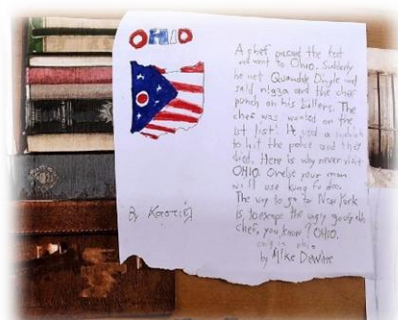 OHIO
A chef passed the test
and went to Ohio. Suddenly
he met Quandale Dingle and
said nigga and the chef
punch on his
The
chef was wanted on the
list! He used a
to hit the police and they
died. Here is why never visit
OHIO. your mom
will use kung fu
The way to go to New York
is, to escape the ugly goofy ahh
chef, you know? OHIO.
only in ohio
by Mike DeWine
By